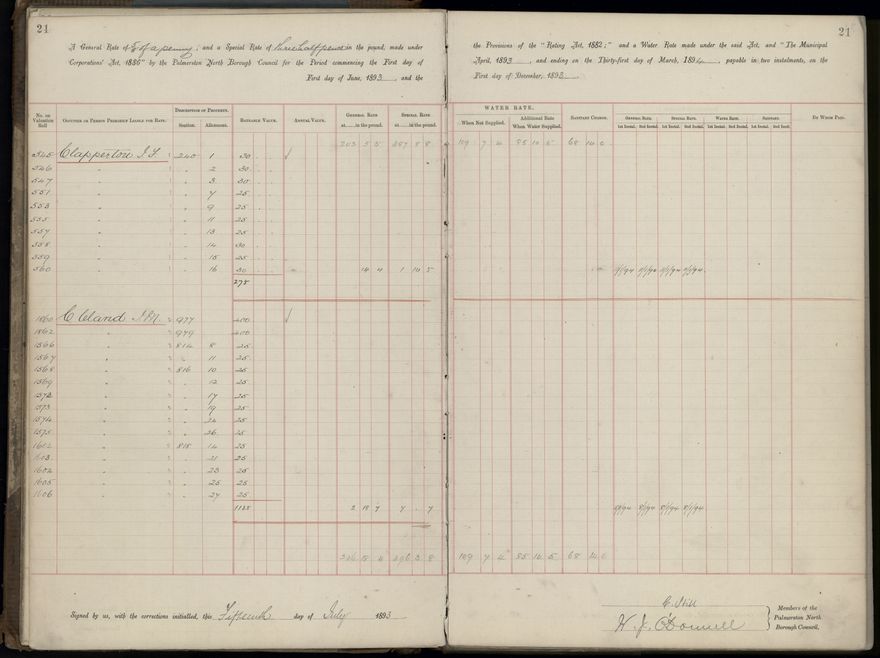 21
21
A General Rate of 5/8 of a penny; and a Special Rate of threehalfpence in the pound, made under the Provisions of the "Rating Act, 1882;" and a Water Rate made under the said Act, and "The Municipal
Corporations' Act, 1886" by the Palmerston North Borough Council for the Period commencing the First day of April, 1893, and ending on the Thirty-first day of March, 1894, payable in two instalments, on the
First day of June, 1893, and the First day of December, 1893.
No. on Valuation Roll
Occupier or Person Primarily Liable for Rate.
Description of Property.
Section. Allotment.
Rateable Value.
Annual Value.
General Rate at in the pound.
Special Rate at in the pound.
WATER RATE.
When Not Supplied.
Additional Rate When Water Supplied.
Sanitary Charge.
General Rate. 1st Instal. 2nd Instal.
Special Rate. 1st Instal. 2nd Instal.
Water Rate. 1st Instal. 2nd Instal.
Sanitary. 1st Instal. 2nd Instal.
By Whom Paid.
109 7 4 85 10 5 68 10 0
545 Clapperton 240 1 30
546 " " 2 30
547 " " 3 30
551 " " 7 25
553 " " 9 25
555 " " 11 25
557 " " 13 25
558 " " 14 30
559 " " 15 25
560 " " 16 30 14 4 1 14 5
275
1860 Cleland 977 400
1862 " 979 400
1566 " 814 8 25
1567 " " 11 25
1568 " 816 10 25
1569 " " 12 25
1572 " " 17 25
1573 " " 19 25
1574 " " 24 25
1575 " " 26 25
1602 " 815 14 25
1603 " " 21 25
1604 " " 23 25
1605 " " 25 25
1606 " " 27 25
1125 2 18 7 7 - 7
109 7 4 85 10 5 68 10 0
Signed by us, with the corrections initialled, this Fifteenth day of July 1893
C. Still
W. J. O'Donnell
Members of the Palmerston North Borough Council.